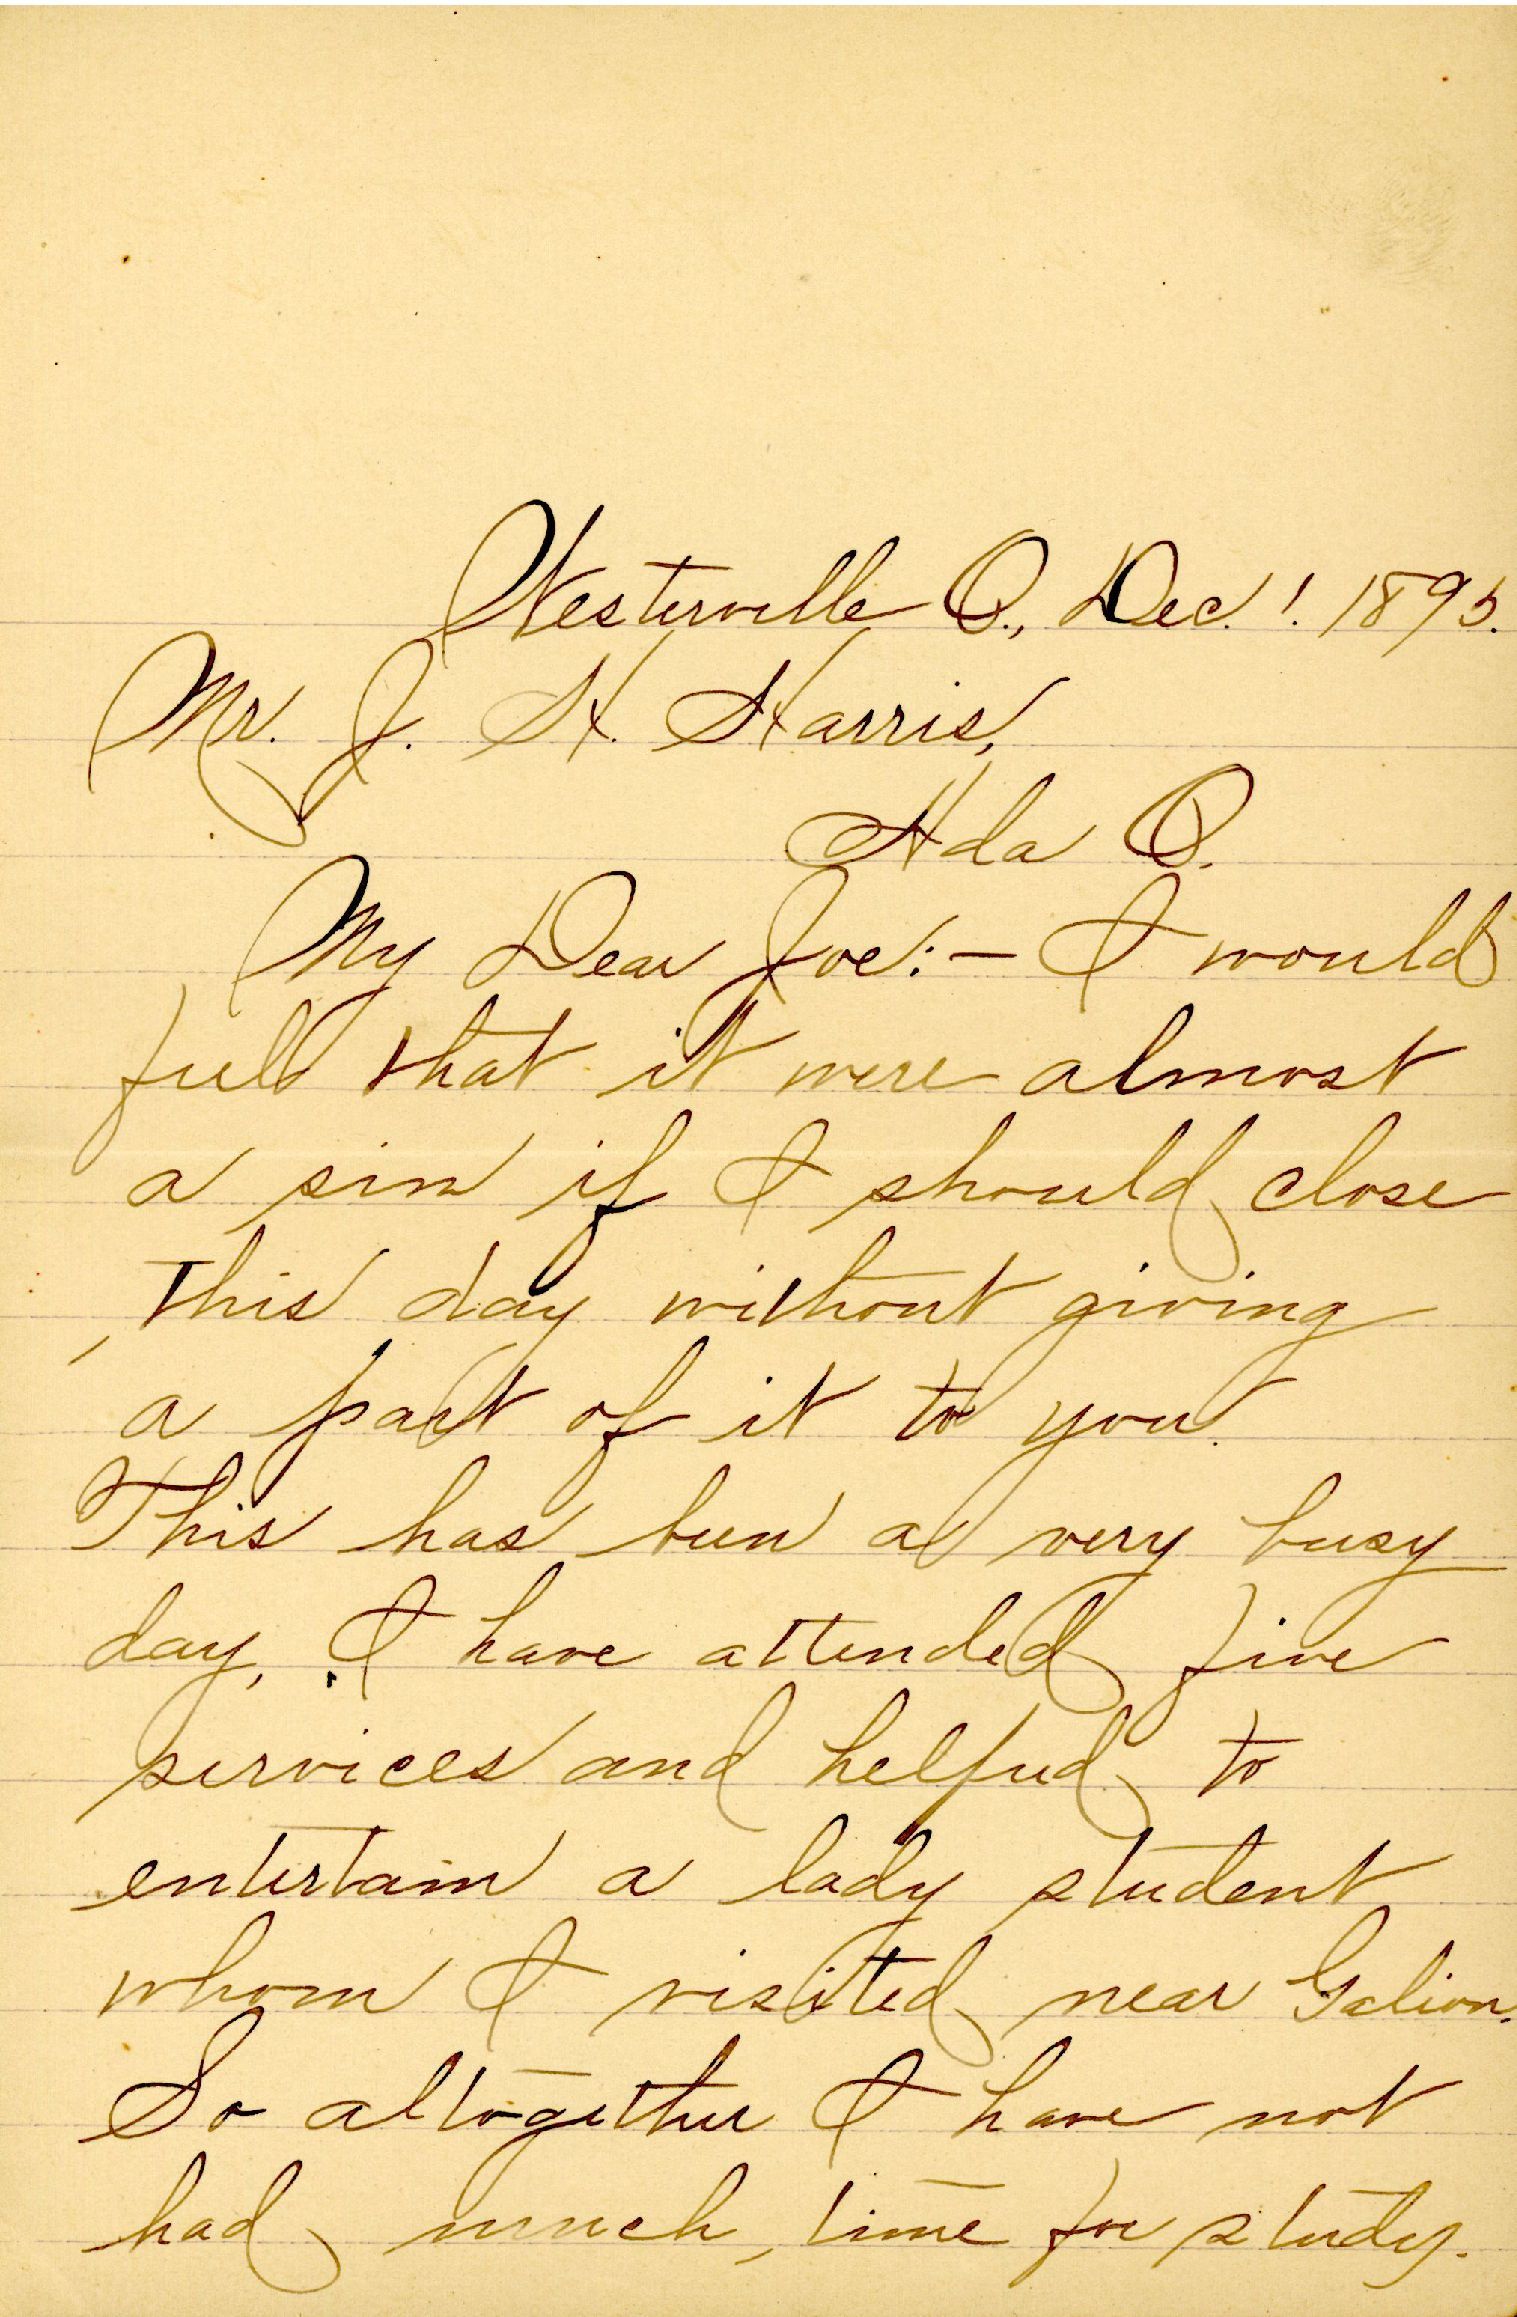 Westerville O., Dec. 1. 1895.
Mr. J. H. Harris,
Ada O.
My Dear Joe:- I would
feel that it were almost
a sin if I should close
this day without giving
a part of it to you.
This has been a very busy
day, I have attended five
services and helped to
entertain a lady student
whom I visited near Galion.
So altogether I have not
had much time for study.